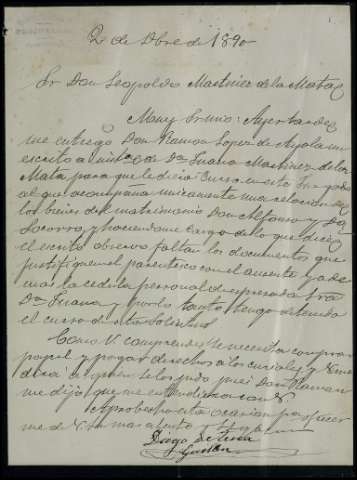 2 de Obre de 1890
Sr Don Leopoldo Martinez de la Mata
Muy Sr mio: Ayer tarde
me entregó Don Ramon Lopez de Ayala un
escrito a de Dª Juana Martinez de la
Mata, para que le diera curso en este Juzgado
al que acompaña unicamente una relacion de
los bienes del matrimonio Don Alfonso y Dª
Socorro, y haciendome cargo de lo que dice
el escrito observo faltan los documentos que
justifiquen el parentesco con el ausente y ade
mas la cedula personal de expresada Sra
Dª Juana y por lo tanto tengo detenido
el curso de esta solicitud
Como V comprenderá se necesita comprar
papel y pagar derechos a los curiales y V me
dirá a quien se los pido pues Don Ramon
me dijo que me a V
Aprovecho esta ocasion para ofrecer
me de V su mas atento y
Diego de